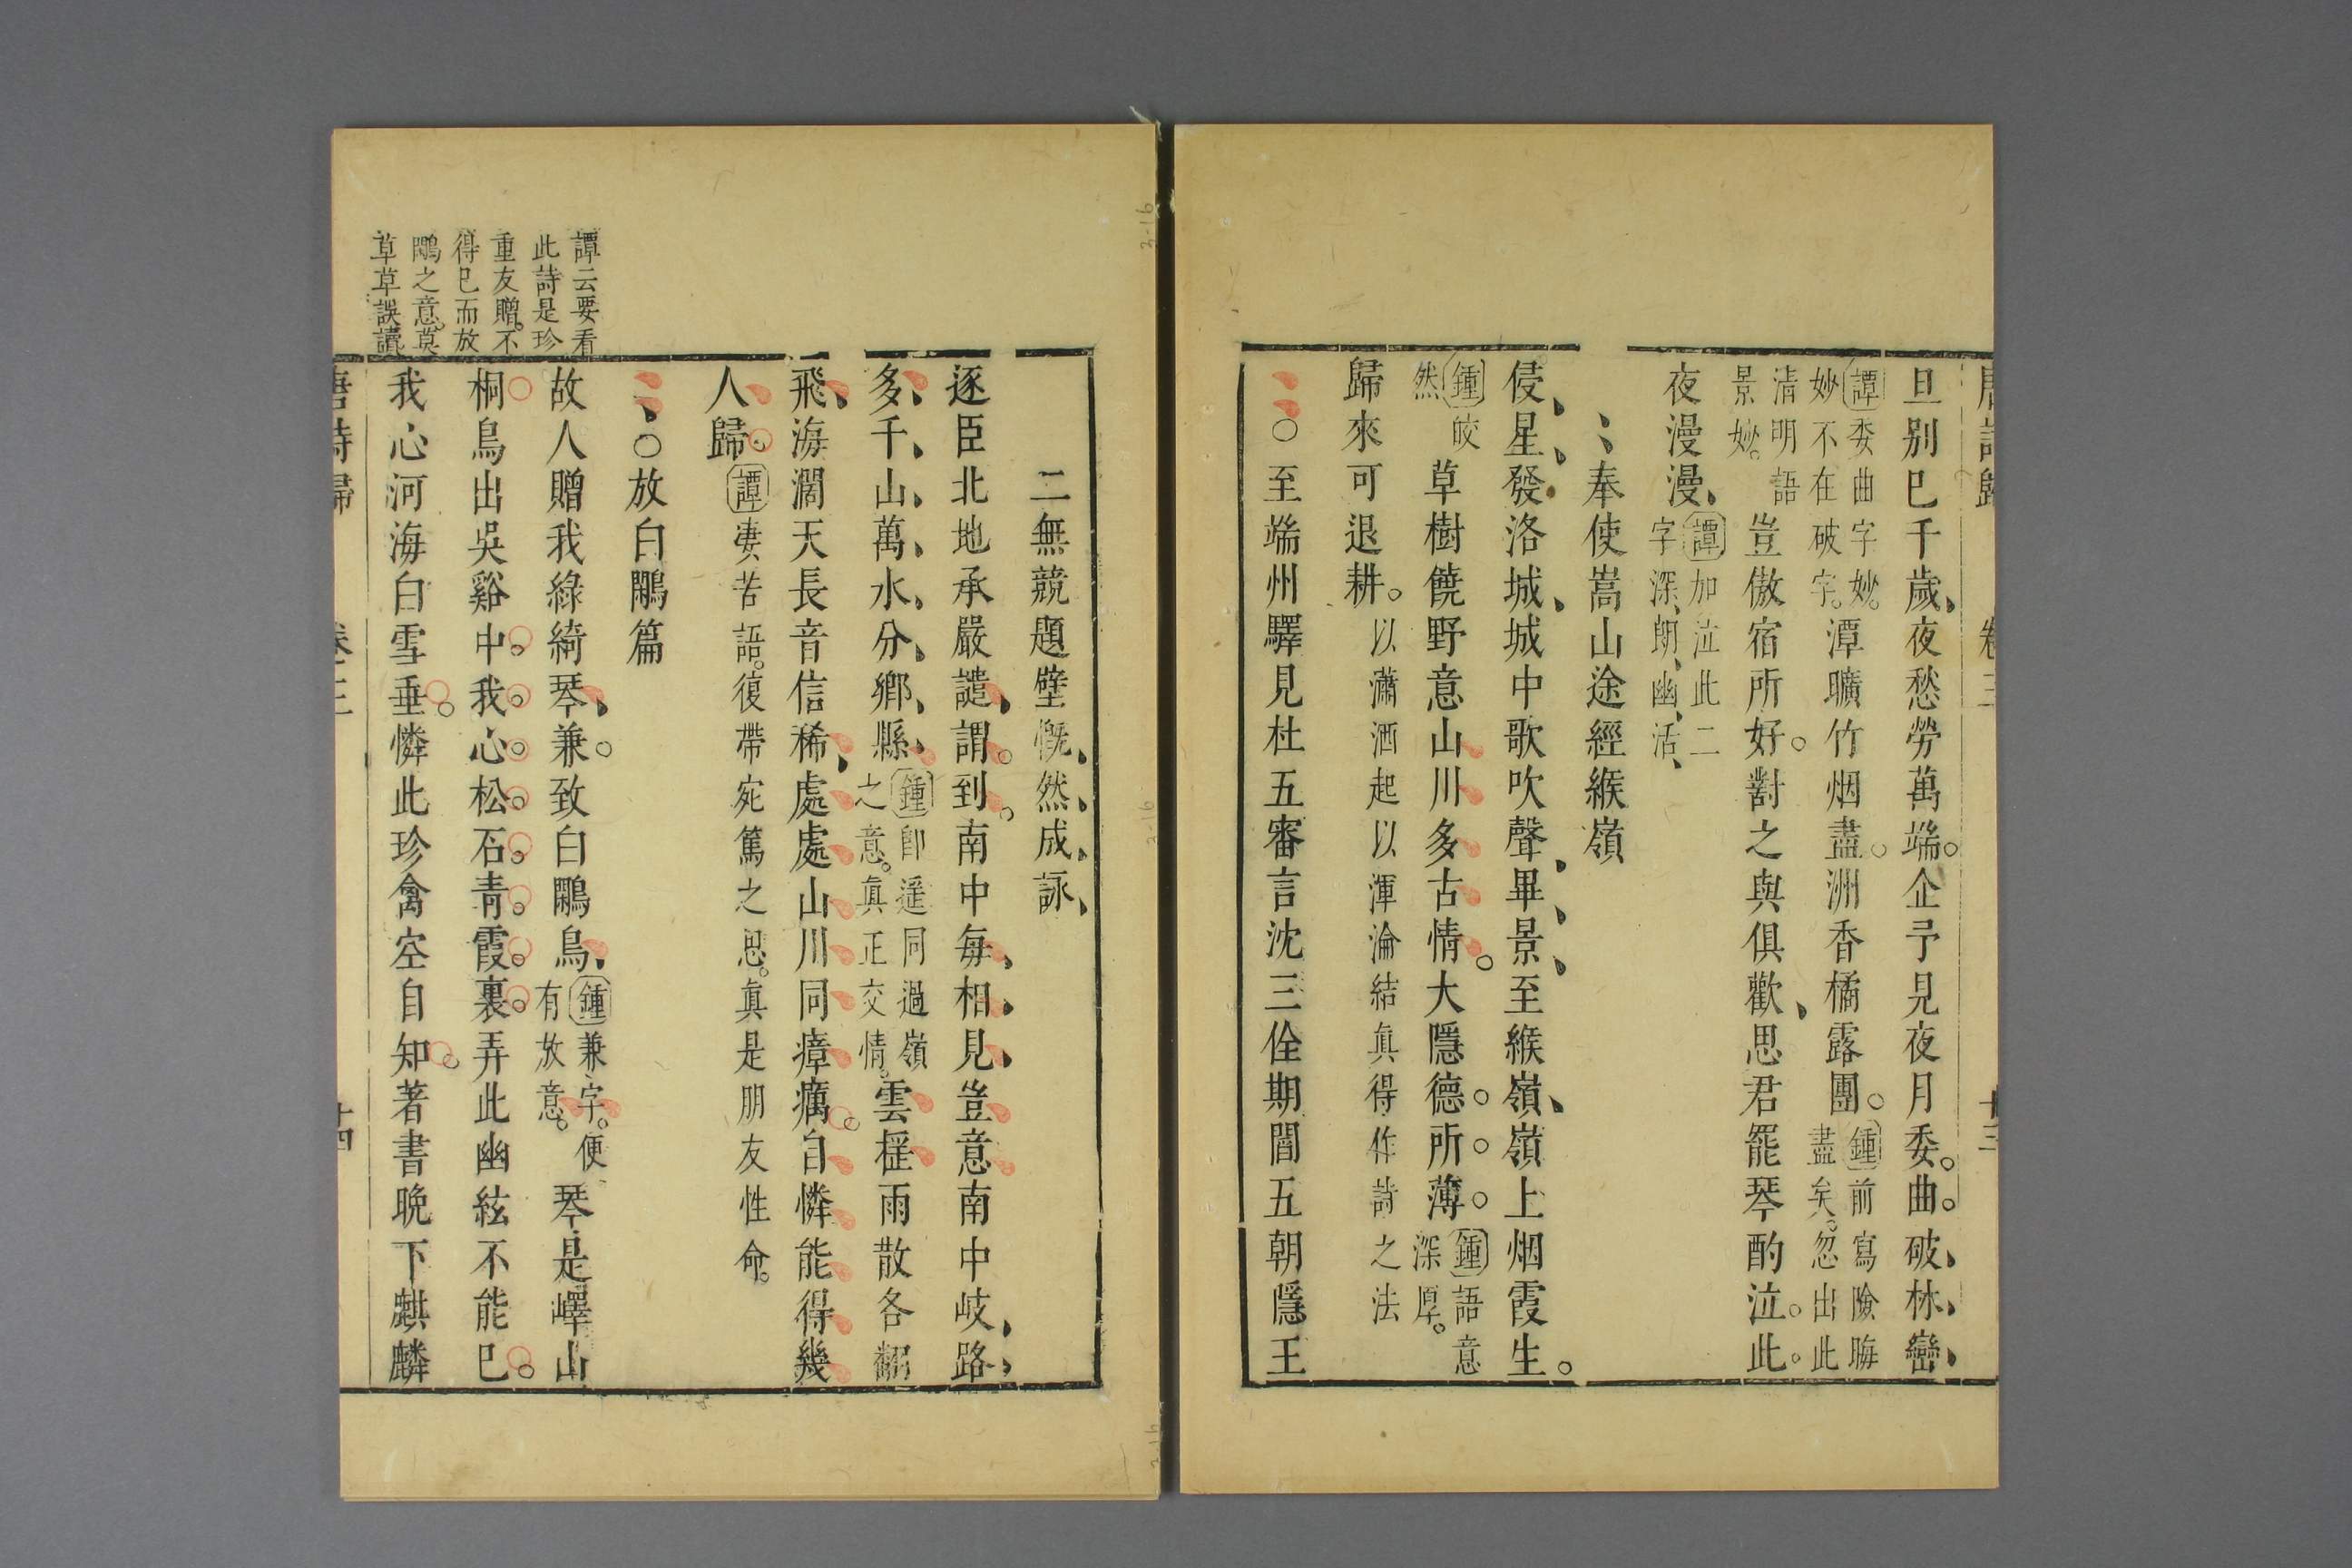 旦別巳千歲夜愁勞萬端企予見夜月委曲破林巒
譚委曲字妙
妙不在破字
潭曠竹烟盡洲香橘露團
鍾前寫險晦
盡矣忽出此
清明語
景妙
豈傲宿所好對之與俱歡思君罷琴酌泣此
夜漫漫
譚加泣此二
字深朗幽活
奉使嵩山途經緱嶺
侵星發洛城城中歌吹聲畢景至緱嶺嶺上烟霞生
鍾皎
然
草樹饒野意山川多古情大隱德所薄
鍾語意
深厚
歸來可退耕
以瀟洒起以渾淪結真得作詩之法
○至端州驛見杜五審言沈三佺期閻五朝隱王
二無競題壁慨然成詠
逐臣北地承嚴譴謂到南中每相見豈意南中岐路
多千山萬水分鄉縣
鍾卽遥同過嶺
之意真正交情
雲搖雨散各翻
飛海濶天長音信稀處處山川同瘴癘自憐能得幾
人歸
譚悽苦語復帶宛篤之思真是朋友性命
○放白鷴篇
譚云要看
此詩是珍
重友贈不
得巳而放
鷴之意莫
草草誤讀
故人贈我綠綺琴兼致白鷴鳥
鍾兼字便
有放意
琴是嶧山
桐鳥出吳谿中我心松石青霞裏弄此幽絃不能巳
我心河海白雪垂憐此珍禽空自知著書晚下麒麟
唐詩歸 卷三 十四